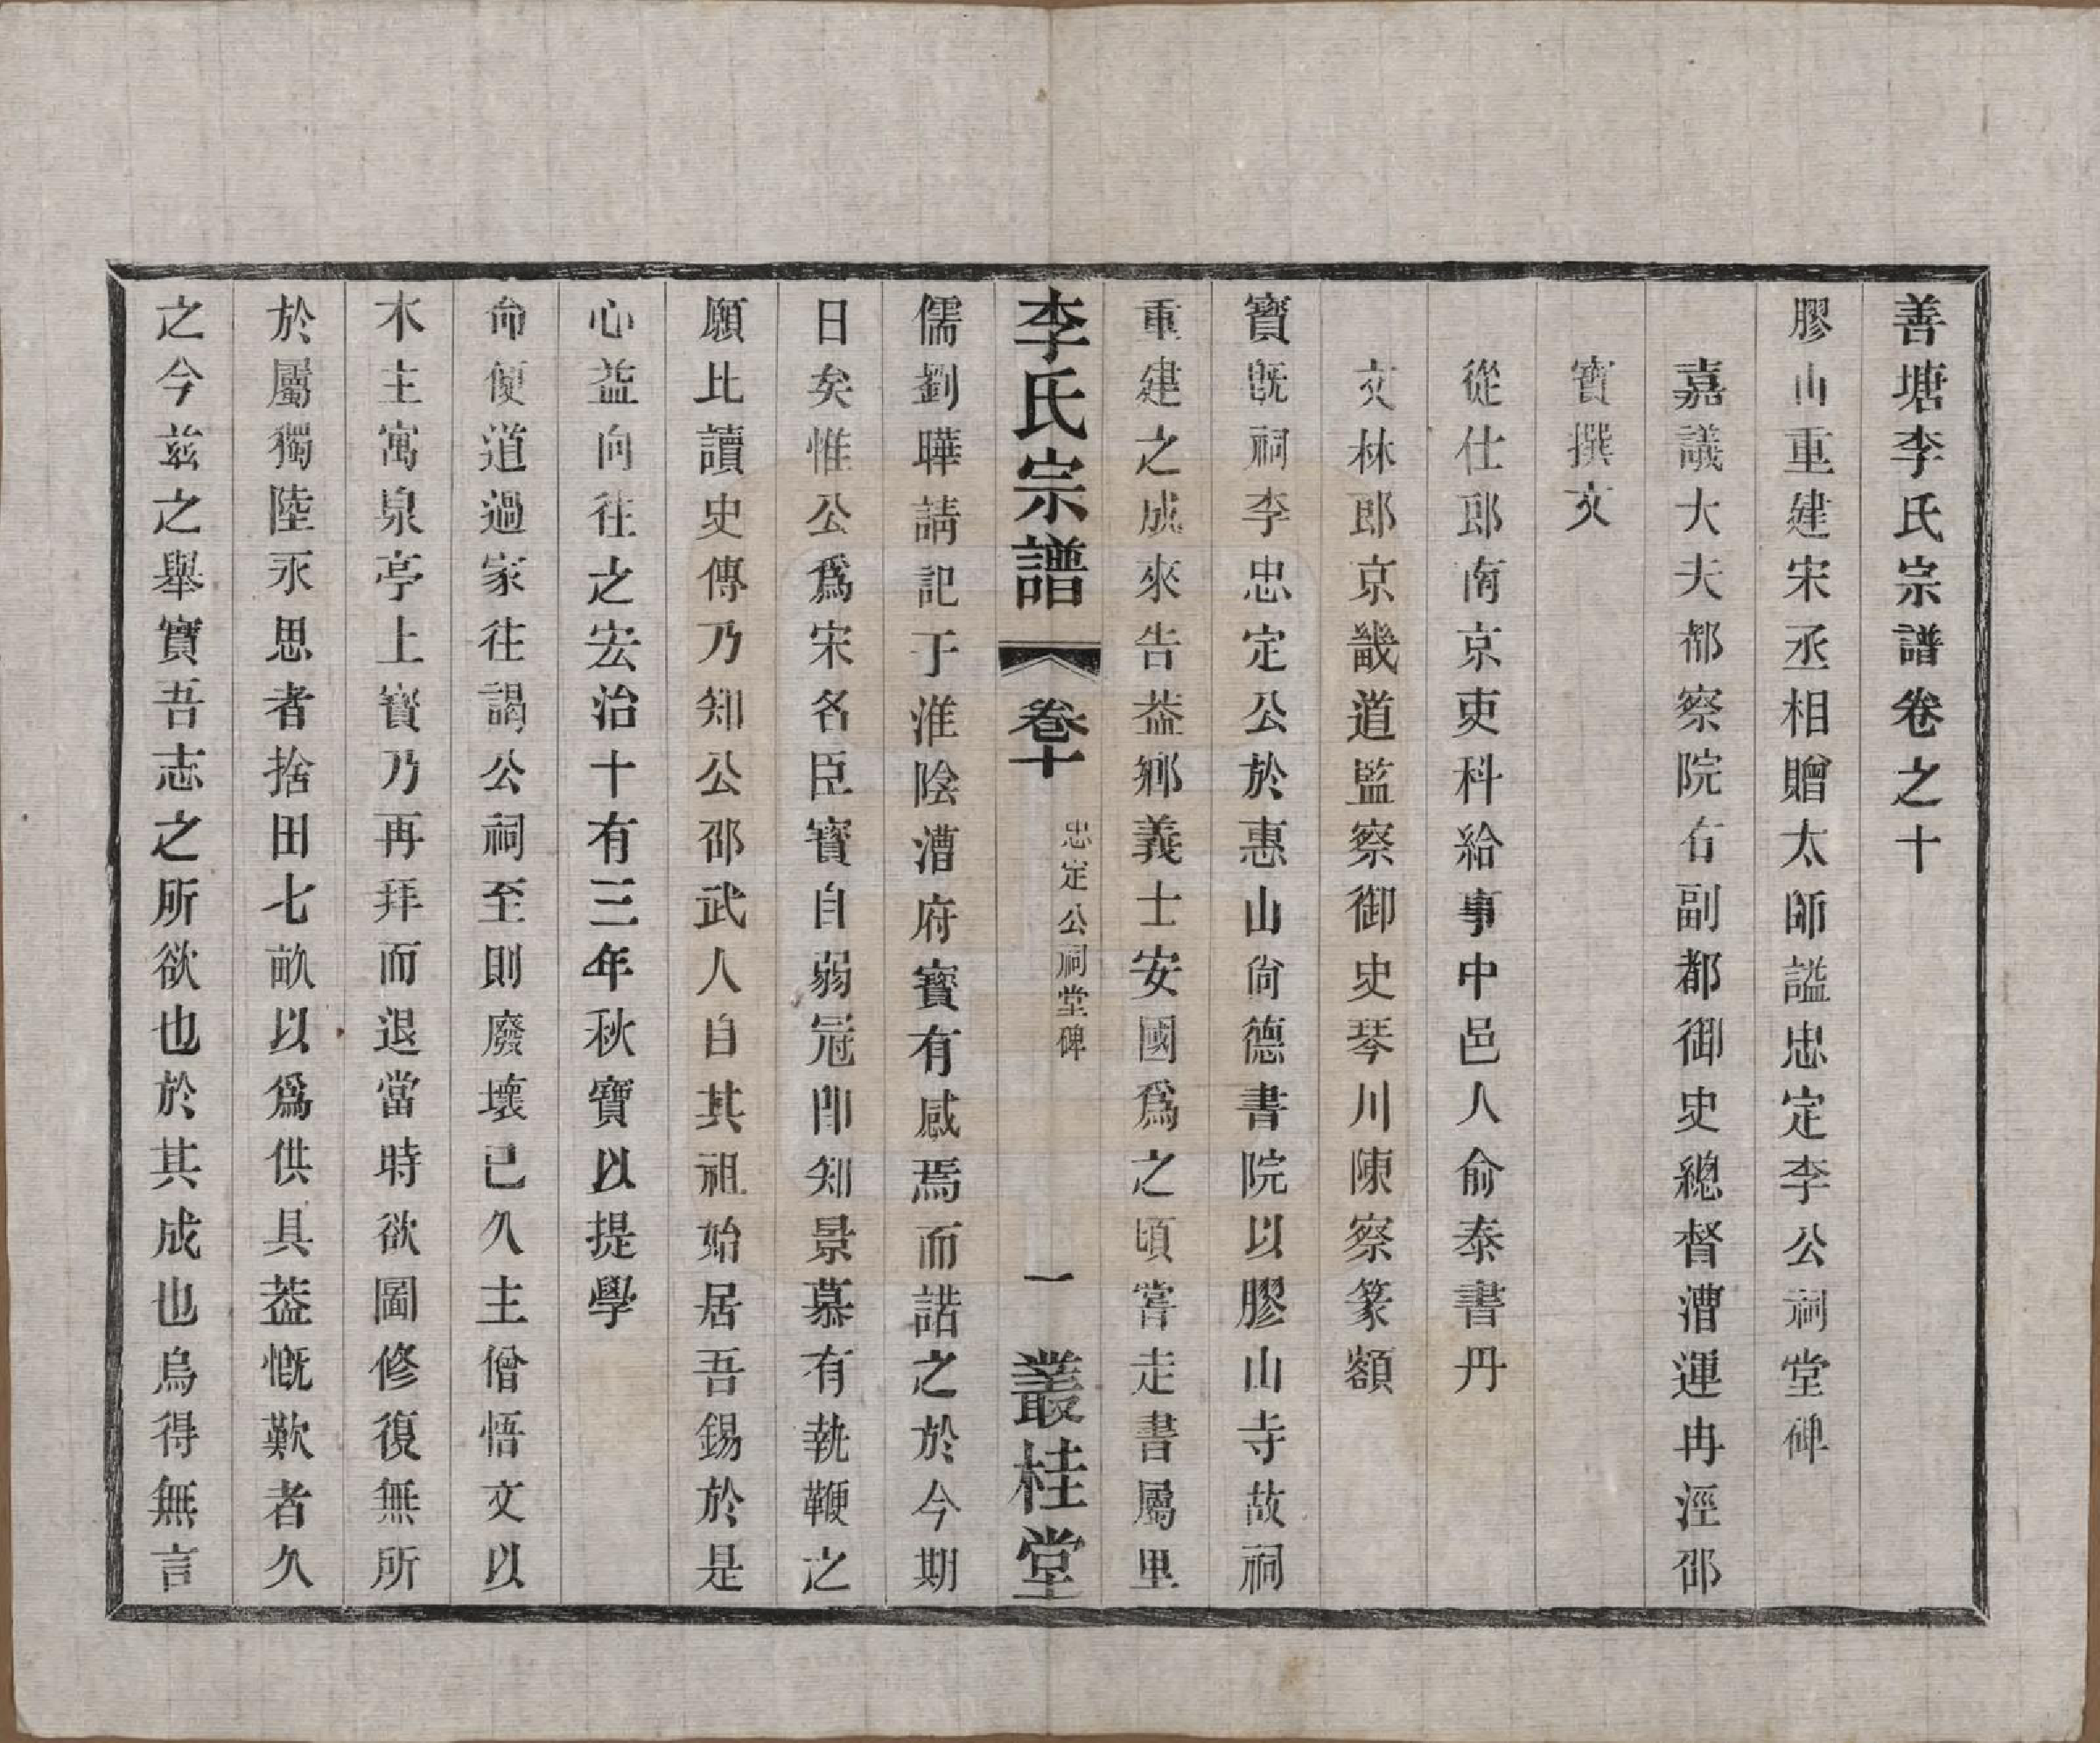 善塘李氏宗譜卷之十
膠山重建宋丞相贈太師謚忠定李公祠堂碑
嘉議大夫都察院右副都御史總督漕運冉涇邵
寶撰文
從仕郎南京吏科給事中邑人俞泰書丹
文林郎京畿道監察御史琴川陳察篆額
寶旣祠李忠定公於惠山尙德書院以膠山寺故祠
重建之成來告葢鄕義士安國爲之頃嘗走書屬里
李氏宗譜 卷十 忠定公祠堂碑 一 叢桂堂
儒劉曄請記于淮陰漕府寶有感焉而諾之於今期
日矣惟公爲宋名臣寶自弱冠卽知景慕有執鞭之
願比讀史傳乃知公邵武人自其祖始居吾錫於是
心益向往之宏治十有三年秋寶以提學
命便道過家往謁公祠至則廢壞已久主僧悟文以
木主寓泉亭上寶乃再拜而退當時欲圖修復無所
於屬獨陸永思者捨田七畝以爲供具葢慨歎者久
之今茲之舉寶吾志之所欲也於其成也烏得無言